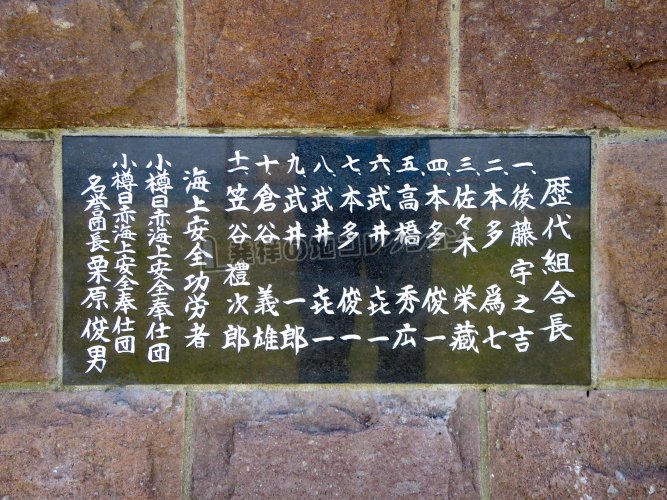 歴代組合長
一、後藤宇之吉
二、本多為七
三、佐々木栄藏
四、本多俊一
五、高橋秀広
六、武井㐂一
七、本多俊一
八、武井㐂一
九、武井一郎
十、倉谷義雄
十一、笠谷禮次郎
海上安全功労者
小樽日赤海上安全奉仕団
小樽日赤海上安全奉仕団
名誉団長栗原俊男
発祥の地コレクション